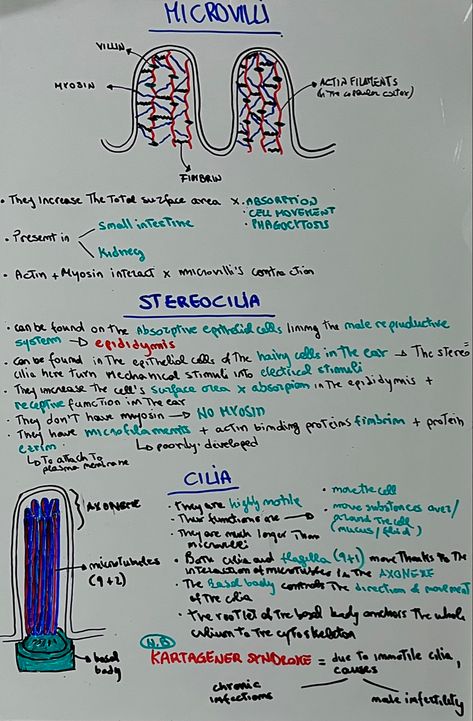 MICROVILLI
VILLIN
MYOSIN
ACTIN FILAMENTS
(in the cellular cortex)
FIMBRIN
• They increase the total surface area x • ABSORPTION
• CELL MOVEMENT
• PHAGOCYTOSIS
• Present in
small intestine
kidney
• Actin + Myosin interact x microvilli's contraction
STEREOCILIA
• can be found on the absorptive epithelial cells lining the male reproductive
system → epididymis
• can be found in the epithelial cells of the hairy cells in the ear → The stereo=
cilia here turn mechanical stimuli into electrical stimuli
• They increase the cell's surface area x absorption in the epididymis +
receptive function in the ear
• They don't have myosin → NO MYOSIN
• They have microfilaments + actin binding proteins fimbrin + protein
ezrin.
↳ to attach to
plasma membrane
↳ poorly-developed
CILIA
AXONEME
microtubules
(9+2)
basal
body
• They are highly motile
• Their functions are →
• move the cell
• move substances over/
around the cell
(mucus/fluid)
• They are much longer than
microvilli
• Both cilia and flagella (9+1) move thanks to the
interaction of microtubules in the AXONEME
• The basal body controls the direction of movement
of the cilia
• The rootlet of the basal body anchors the whole
cilium to the cytoskeleton
N.B
KARTAGENER SYNDROME = due to immotile cilia,
causes
chronic
infections
male infertility